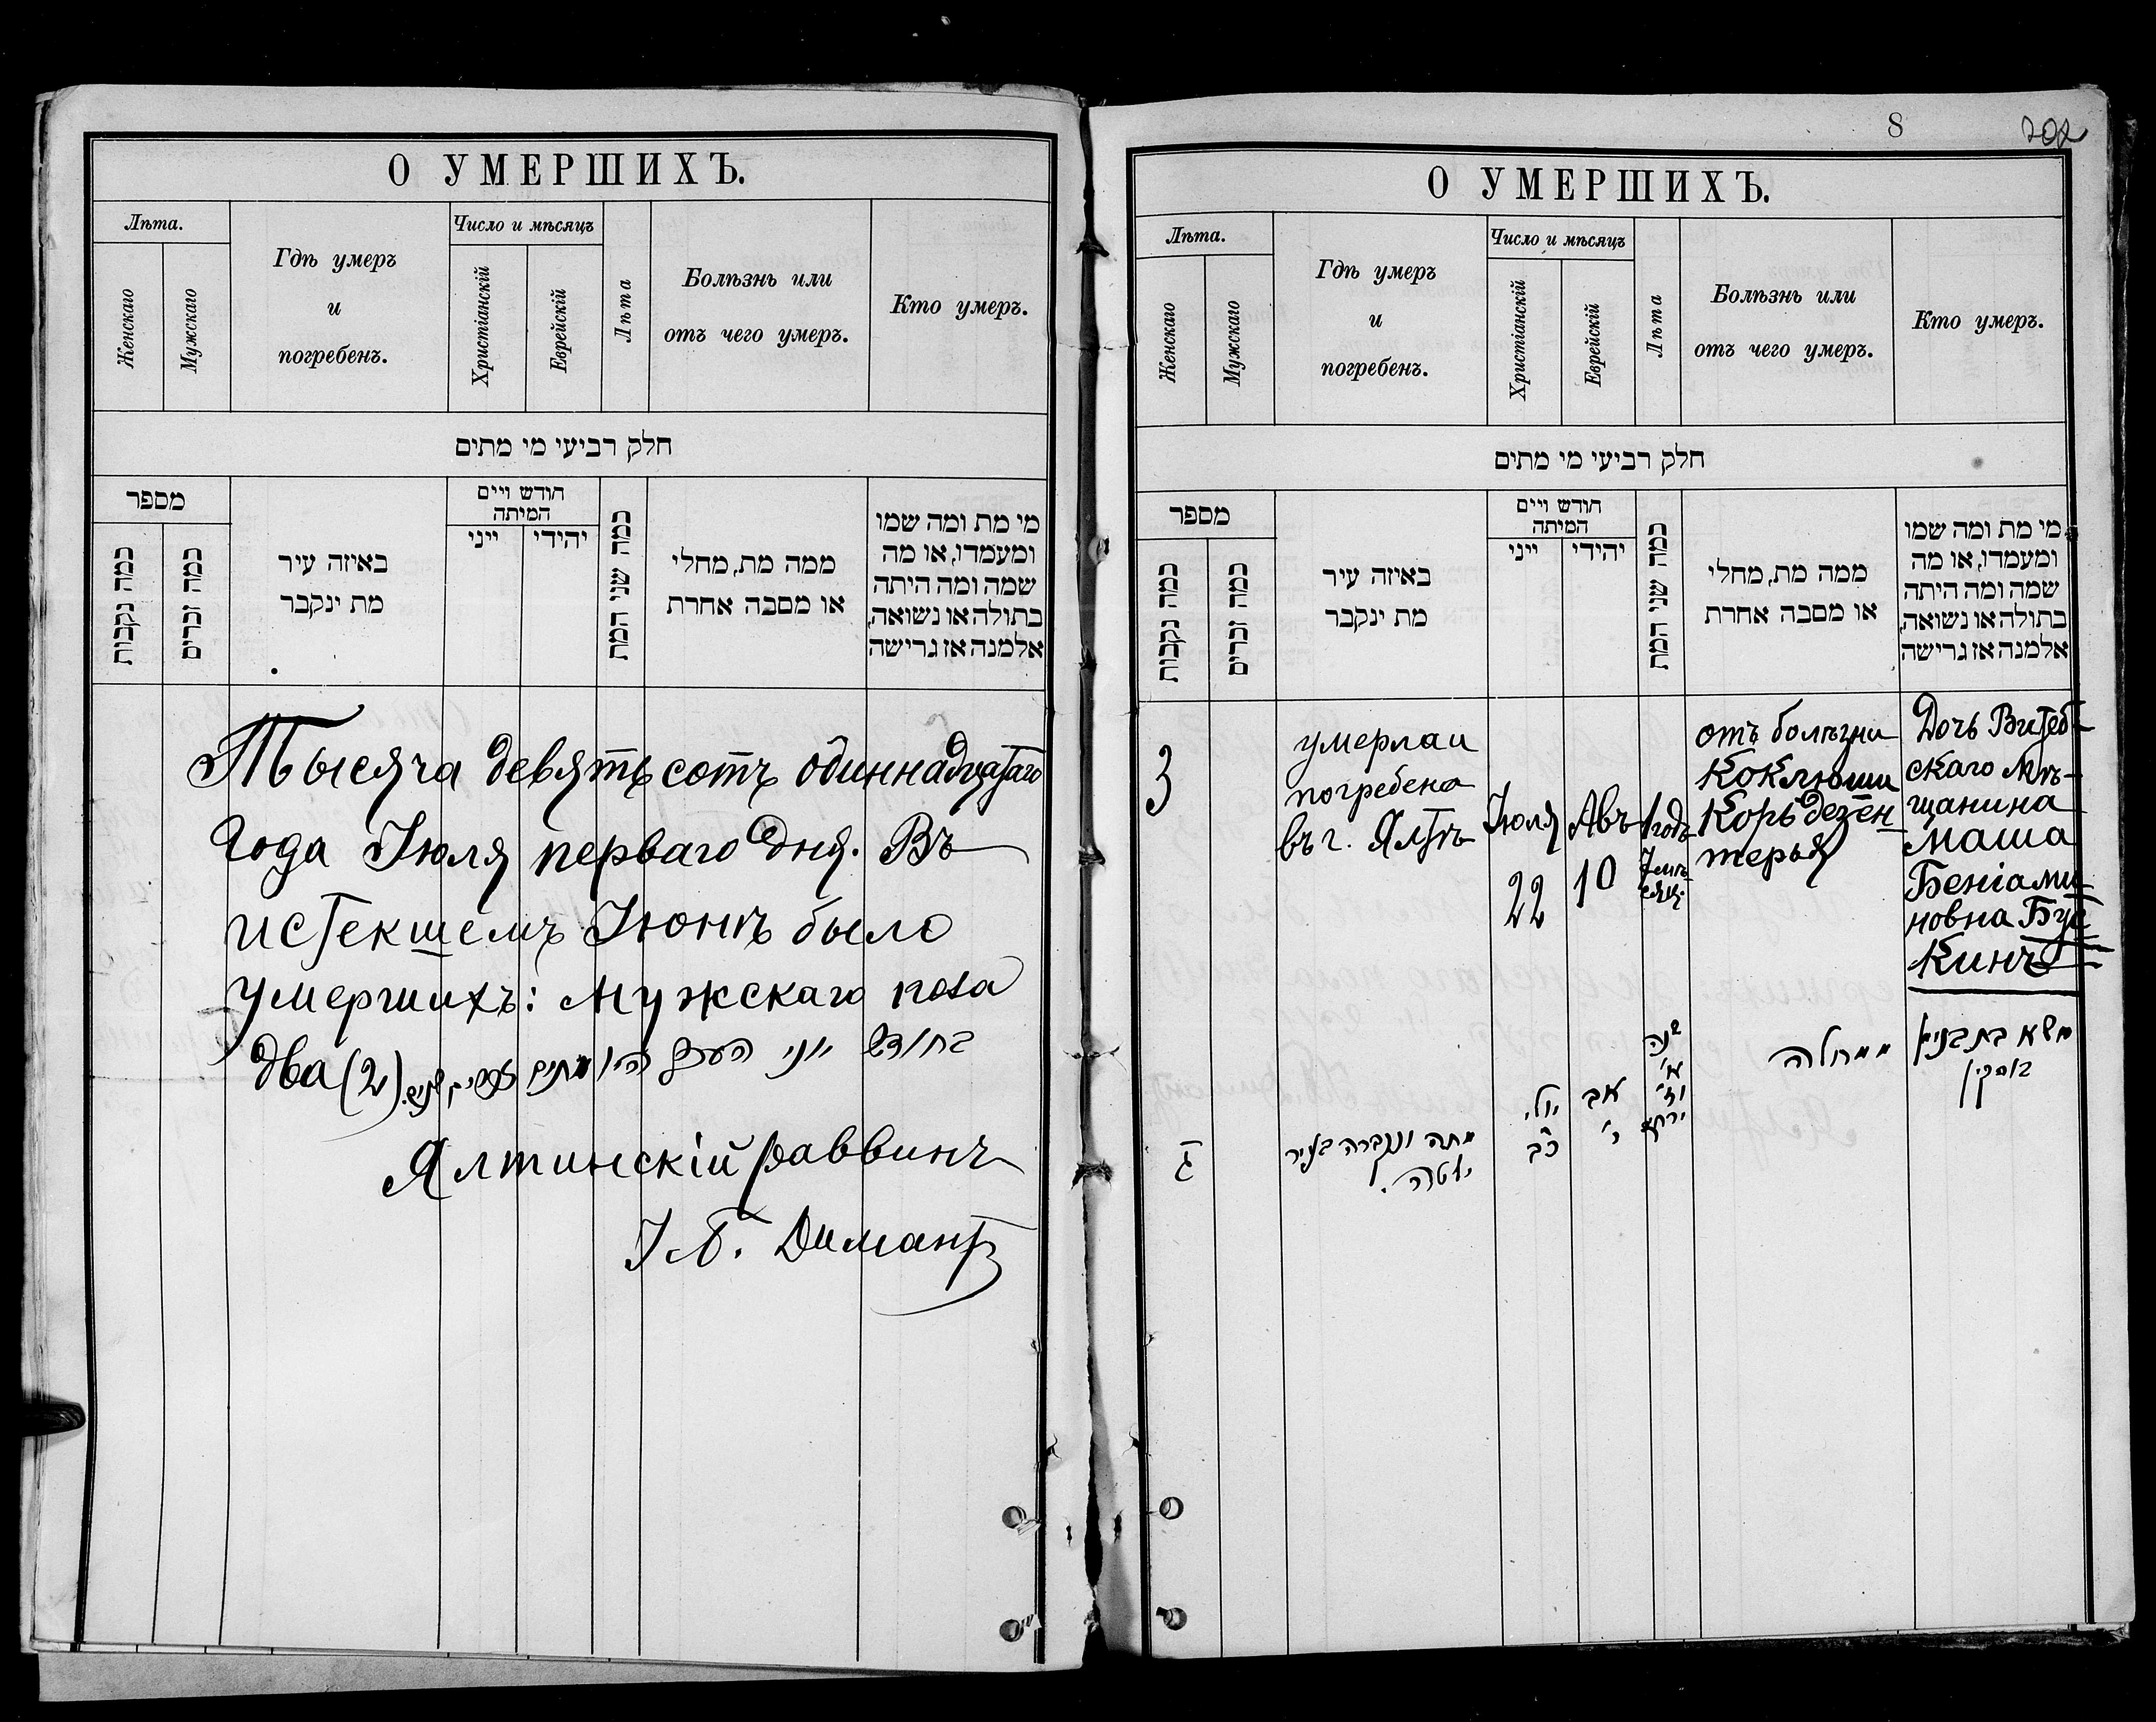 О УМЕРШИХЪ.
Лѣта.
Женскаго
Мужскаго
Гдѣ умеръ
и
погребенъ.
Число и мѣсяцъ
Христіанскій
Еврейскій
Лѣта
Болѣзнь или
отъ чего умеръ.
Кто умеръ.
חלק רביעי מי מתים
מספר
כמה נקבות
כמה זכרים
באיזה עיר
מת ינקבר
חודש ויים
המיתה
ייני
יהידי
כמה שני המת
ממה מת, מחלי
או מסבה אחרת
מי מת ומה שמו
ומעמדו, או מה
שמה ומה היתה
בתולה או נשואה,
אלמנה אז גרישה
Тысяча девятьсотъ одиннадцатаго
года Іюля перваго дня. Въ
истекшемъ Іюнѣ было
умершихъ: мужскаго пола
два (2).
בחודש יוני העבר היו מתים זכרים שנים.
Ялтинскій раввинъ
Димантъ
8
202
О УМЕРШИХЪ.
Лѣта.
Женскаго
Мужскаго
Гдѣ умеръ
и
погребенъ.
Число и мѣсяцъ
Христіанскій
Еврейскій
Лѣта
Болѣзнь или
отъ чего умеръ.
Кто умеръ.
חלק רביעי מי מתים
מספר
כמה נקבות
כמה זכרים
באיזה עיר
מת ינקבר
חודש ויים
המיתה
ייני
יהידי
כמה שני המת
ממה מת, מחלי
או מסבה אחרת
מי מת ומה שמו
ומעמדו, או מה
שמה ומה היתה
בתולה או נשואה,
אלמנה אז גרישה
3
умерла и
погребена
въ г. Ялтѣ
Іюля
22
Авъ
10
1 годъ
7 мѣ-
сяц.
отъ болѣзни
Коклюши
Корь дезен-
терья
Дочь Витеб-
скаго мѣ-
щанина
Маша
Беніами-
новна Бус-
кинъ
ג
מתה ונקברה בעיר
יאלטה.
יולי
כב
אב
י'
שנה
א'
וז'
ירחים
ממחלה
מאשא בת בנימין
בוסקין